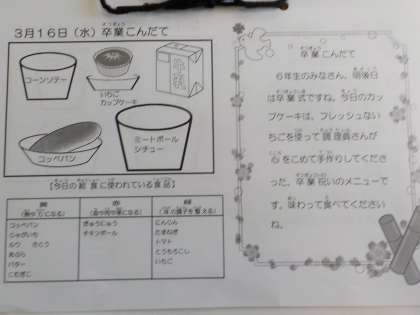 3月16日（水）卒業こんだて
コーンソテー
いちご
カップケーキ
コッペパン
ミートボール
シチュー
【今日の給食に使われている食品】
黄
赤
緑
コッペパン
じゃがいも
ルウ さとう
あぶら
バター
こむぎこ
ぎゅうにゅう
チキンボール
にんじん
たまねぎ
トマト
とうもろこし
いちご
卒業こんだて
６年生のみなさん、明後日
は卒業式ですね。今日のカッ
プケーキは、フレッシュない
ちごを使って調理員さんが
心をこめて手作りしてくださ
った、卒業祝いのメニューで
す。味わって食べてください
ね。